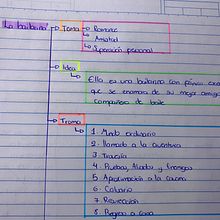 La bailarina
Tema
Romance
Amistad
Superación personal
Idea
Ella es una bailarina con pánico
que se enamora de su mejor amigo
compañero de baile
Trama
1. Mundo ordinario
2. llamado a la aventura
3. Travesía
4. Pruebas, Aliados y Enemigos
5. Aproximación a la caverna
6. Calvario
7.
8. Regreso a casa